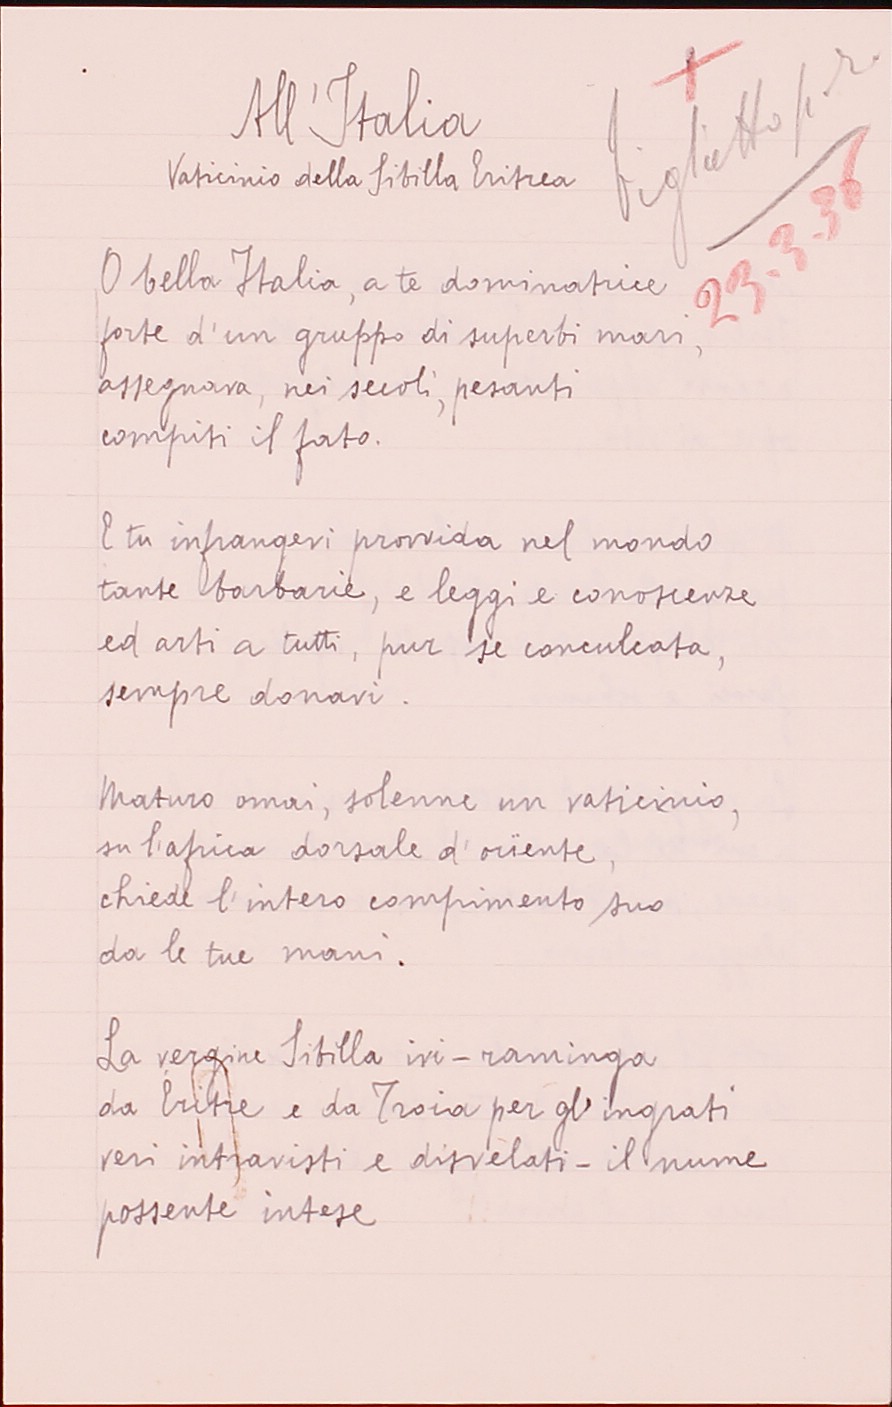 All'Italia
Vaticinio della Sibilla Eritrea
biglietto p.r.
23-3-36
O bella Italia, a te dominatrice
forte d'un gruppo di superbi mari,
assegnava, nei secoli, pesanti
compiti il fato.
E tu infrangevi provvida nel mondo
tante barbarie, e leggi e conoscenze
ed arti a tutti, pur se conculcata,
sempre donavi.
Maturo omai, solenne un vaticinio,
su l'africa dorsale d'orïente,
chiede l'intero compimento suo
da le tue mani.
La vergine Sibilla ivi – raminga
da Eritre e da Troia per gl'ingrati
veri intravisti e disvelati – il nume
possente intese